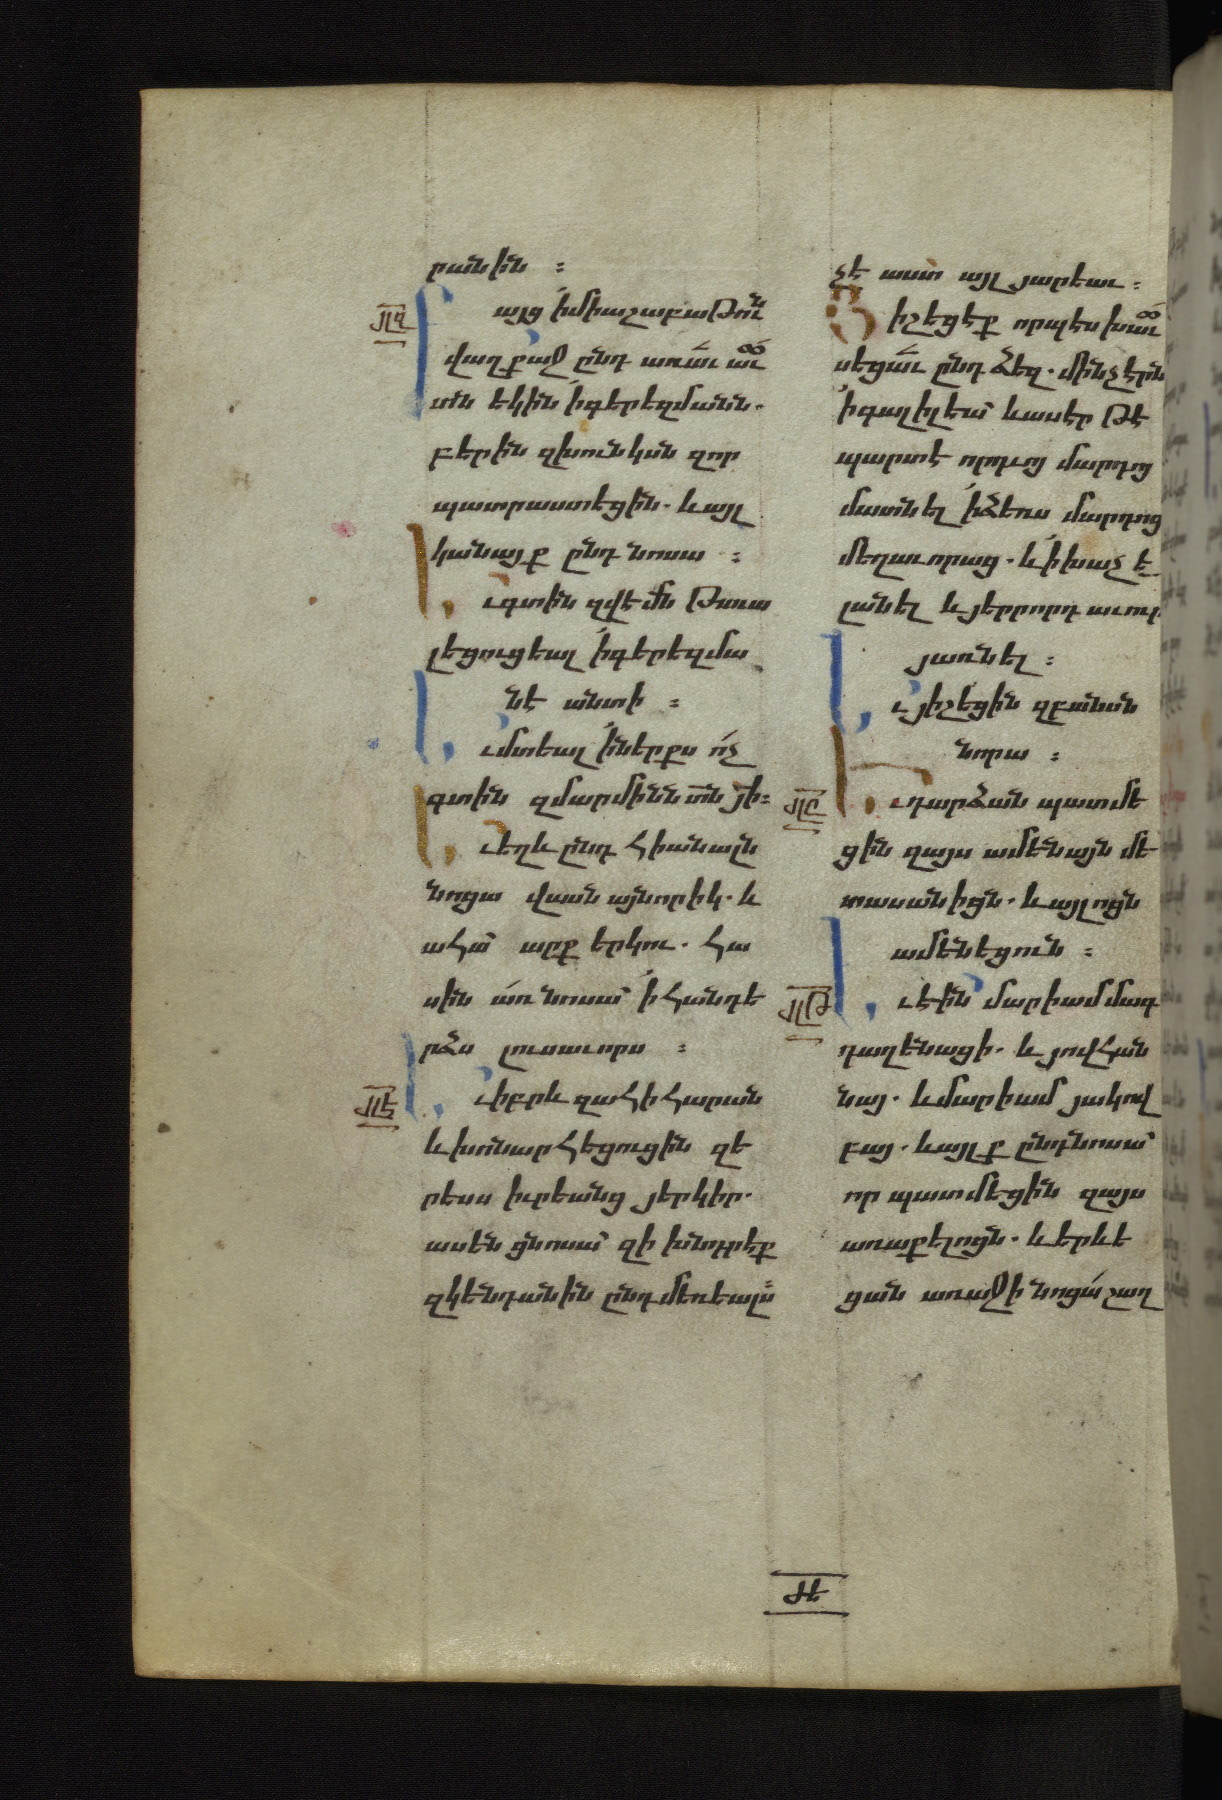 րանին ։
յլզ
այց իմիաշաբաթոււն
վաղ քաջ ընդ առաւաւ
տն եկին իգերեզմանն.
բերին զխունկսն զոր
պատրաստեցին. և այլ
կանայք ընդ նոսա ։
ւգտին զվէմն թաւա
լեցուցեալ իգերեզմա
նէ անտի ։
ւմտեալ իներքս ոչ
գտին զմարմինն տն յի։
ւեղև ընդ հիանալն
նոցա վասն այնորիկ. և
ահա արք երկու. հա
սին առ նոսա ի հանդե
րձս լուսաւորս ։
յլէ
ւիբրև զահի հարան
և խոնարհեցուցին զե
րեսս իւրեանց յերկիր.
ասեն ցնոսա զի խնդրէք
զկենդանին ընդ մեռեալս
չէ աստ այլ յարեաւ ։
Յիշեցէք որպէս խաւ
սեցաւ ընդ ձեզ. մինչ էրն
իգալիլեա և ասէր թէ
պարտ է որդւոյ մարդոյ
մատնել ի ձեռս մարդոց
մեղաւորաց. և ի խաչ ե
լանել և յերրորդ աւուր
յառնել ։
ւյիշեցին զբանսն
նորա ։
յլը
ւդարձան պատմե
ցին զայս ամենայն մե
տասանիցն. և այլոցն
ամենեցուն ։
յլթ
ւէին մարիամ մագ
դաղենացի. և յովհան
նայ. և մարիամ յակով
բայ. և այլք ընդ նոսա
որ պատմեցին զայս
առաքելոցն. և երևե
ցան առաջի նոցա շաղ
ժե